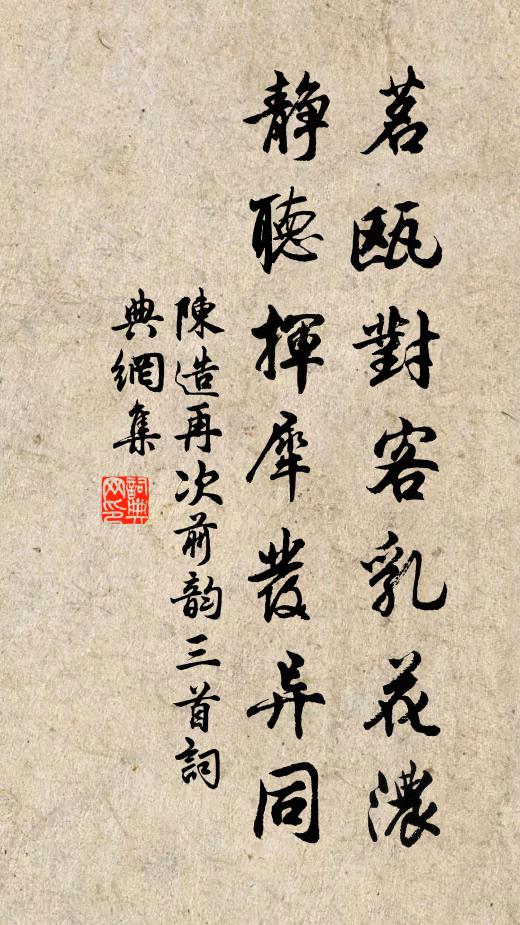 茗甌對客乳花濃
静聽揮犀發异同
陳造再次前韵三首詞
典網集
詞典
网印